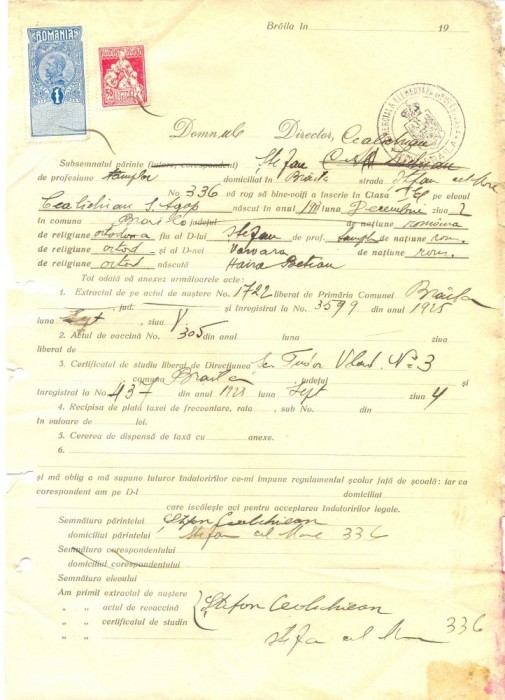 Brăila în 19
ROMANIA
1
Domnule Director,
Subsemnatul părinte (tutore, corespondent) Ștefan
de profesiune domiciliat în Brăila strada Ștefan cel Mare
No 336 vă rog să bine-voiți a înscrie în Clasa pe elevul
născut în anul luna Decembrie ziua 2
în comuna Brăila județul de națiune româna
de religiune ortodoxa fiu al D-lui Ștefan de prof. de națiune rom.
de religiune ortod. și al D-nei Varvara de națiune rom.
de religiune ortod. născută
Tot odală vă anexez următoarele acte:
1. Extractul de pe actul de naștere No. 1722 liberat de Primăria Comunei Brăila
, jud. și înregistrat la No. 3599 din anul 1925
luna Sept, ziua V.
2. Actul de vaccină No. 305 din anul luna ziua
liberat de
3. Certificatul de studiu liberat de Direcțiunea Tudor Vlad. No 3
comuna Braila județul și
înregistrat la No 437 din anul 1925 luna Sept ziua 4
4. Recipisa de plată taxei de frecventare, rata , sub No. din
în valoare de lei.
5. Cererea de dispensă de taxă cu anexe.
6.
și mă oblig a mă supune tuturor îndatoririlor ce-mi impune regulamentul școlar față de școală: iar ca
corespondent am pe D-l domiciliat
care iscălește aci pentru acceptarea îndatoririlor legale.
Semnătura părintelui Ștefan
domiciliul părintelui Ștefan cel Mare 336
Semnătura corespondentului
domiciliul corespondentului
Semnătura elevului
Am primit extractul de naștere
„ „ actul de revaccină Ștefan
„ „ certificatul de studiu
„ „ Ștefan cel Mare 336